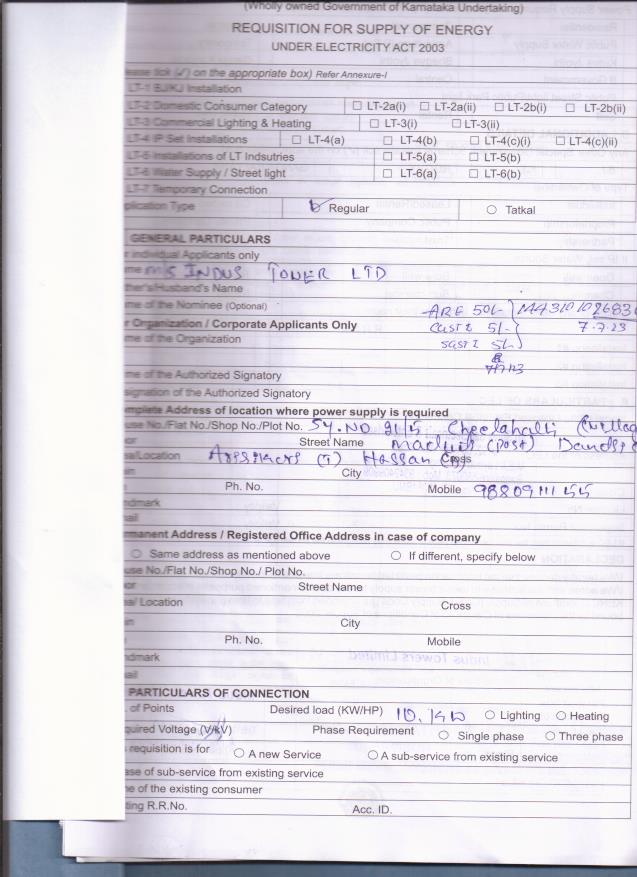 (Wholly owned Government of Karnataka Undertaking)
REQUISITION FOR SUPPLY OF ENERGY
UNDER ELECTRICITY ACT 2003
ease tick (✓) on the appropriate box) Refer Annexure-I
LT-1 BJ/KJ Installation
LT-2 Domestic Consumer Category ☐ LT-2a(i) ☐ LT-2a(ii) ☐ LT-2b(i) ☐ LT-2b(ii)
LT-3 Commercial Lighting & Heating ☐ LT-3(i) ☐ LT-3(ii)
LT-4 IP Set Installations ☐ LT-4(a) ☐ LT-4(b) ☐ LT-4(c)(i) ☐ LT-4(c)(ii)
LT-5 Installations of LT Indsutries ☐ LT-5(a) ☐ LT-5(b)
LT-6 Water Supply / Street light ☐ LT-6(a) ☐ LT-6(b)
LT-7 Temporary Connection
plication Type Regular ○ Tatkal
GENERAL PARTICULARS
r individual Applicants only
me M/S INDUS TOWER LTD
ther's/Husband's Name
me of the Nominee (Optional) ARF 50/- M4310102683
r Organization / Corporate Applicants Only CGST 5/- 7.7.23
me of the Organization SGST 5/-
7/7/23
me of the Authorized Signatory
signation of the Authorized Signatory
mplete Address of location where power supply is required
use No./Flat No./Shop No./Plot No. SY.NO 91/5 Cheelahalli
Street Name (Post)
ea/Location (T) Hassan Cross
in City
Ph. No. Mobile 9880911155
ndmark
ail
rmanent Address / Registered Office Address in case of company
○ Same address as mentioned above ○ If different, specify below
use No./Flat No./Shop No./ Plot No.
or Street Name
ea/ Location Cross
in City
Ph. No. Mobile
ndmark
ail
PARTICULARS OF CONNECTION
. of Points Desired load (KW/HP) 10. KW ○ Lighting ○ Heating
quired Voltage (V/kV) Phase Requirement ○ Single phase ○ Three phase
requisition is for ○ A new Service ○ A sub-service from existing service
ase of sub-service from existing service
me of the existing consumer
ting R.R.No. Acc. ID.